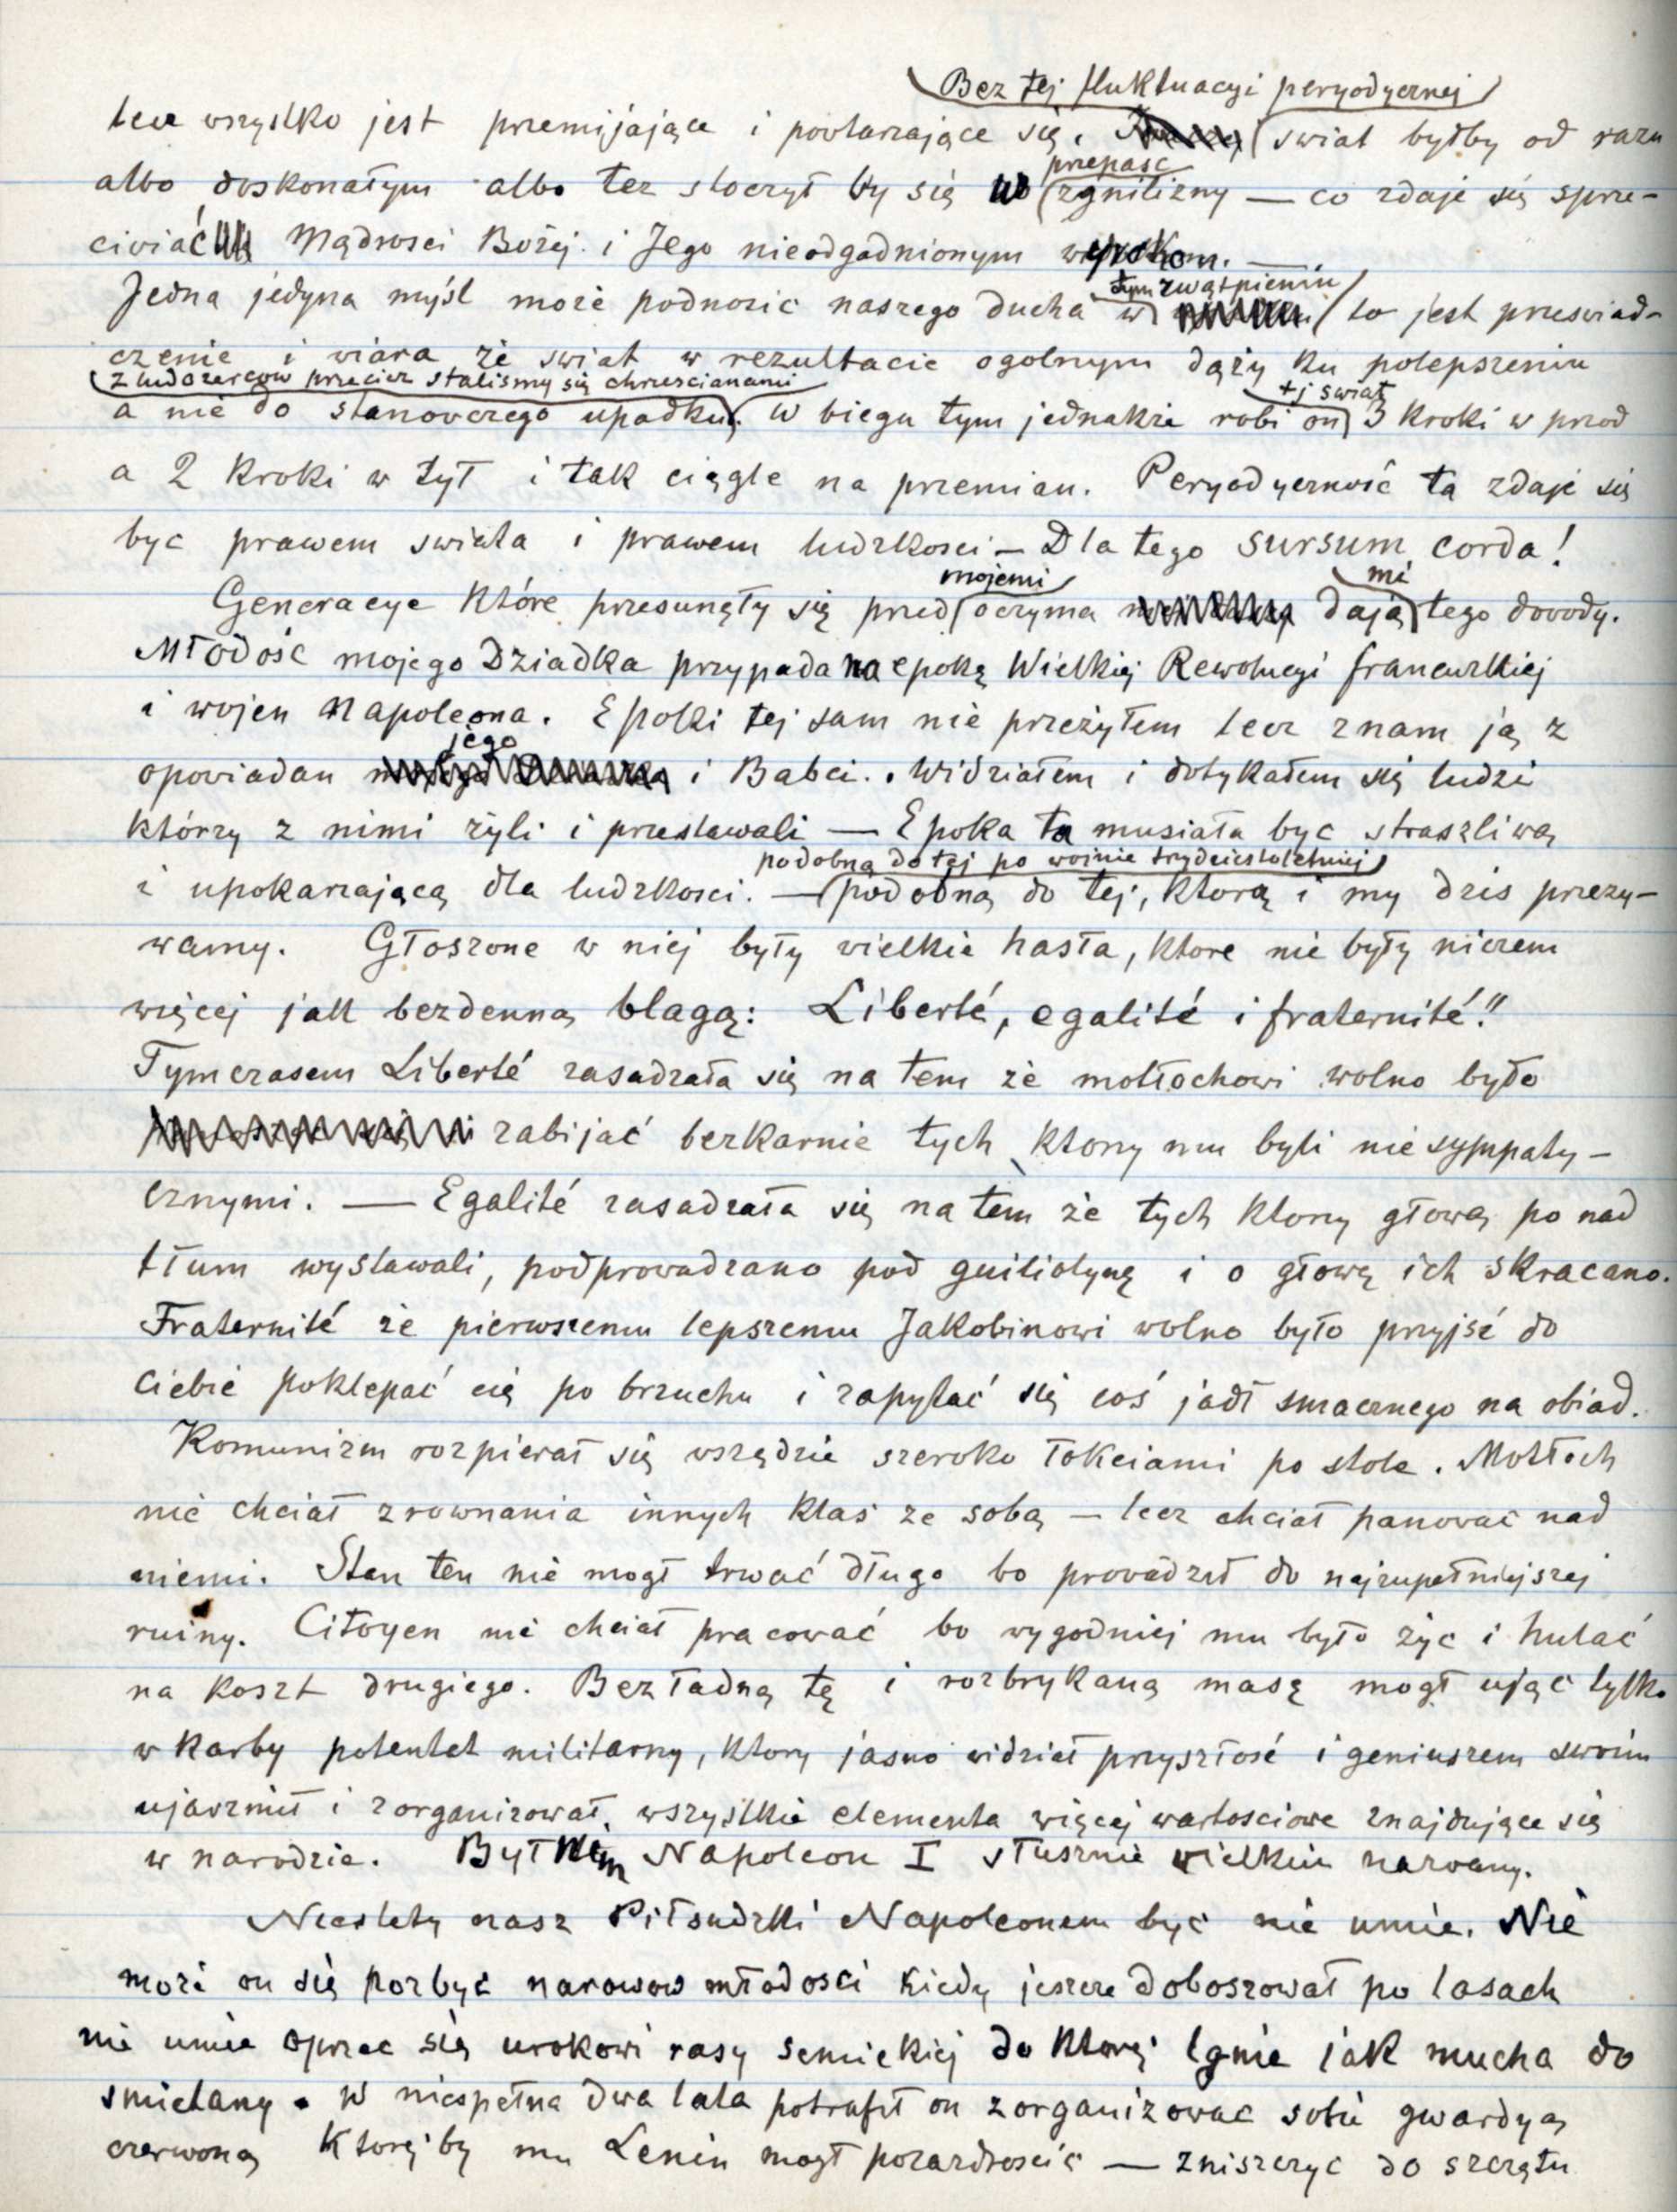 Bez tej fluktuacyi peryodycznej
lecz wszystko jest przemijające i powtarzające się. swiat byłby od razu
przepasc
albo doskonałym albo tez stoczył by się w zgnilizny — co zdaje się sprze-
ciwiać Mądrosci Bożej i Jego nieodgadnionym wyrokom. —
tym zwątpieniu
Jedna jedyna myśl może podnosic naszego ducha w to jest przeswiad-
czenie i wiara że swiat w rezultacie ogolnym dąży ku polepszeniu
z ludozercow przeciez stalismy się chrzescianami
+j swiat
a nie do stanowczego upadku. W biegu tym jednakże robi on 3 kroki w przod
a 2 kroki w tył i tak ciągle na przemian. Peryodyczność ta zdaje się
byc prawem swiata i prawem ludzkosci — Dla tego sursum corda!
mojemi
mi
Generacye które przesunęły się przed oczyma dają tego dowody.
Młodośc mojego Dziadka przypada na epokę Wielkiej Rewolucyi francuzkiej
i wojen Napoleona. Epoki tej sam nie przeżyłem lecz znam ją z
jego
opowiadan i Babci. Widziałem i dotykałem się ludzi
którzy z nimi żyli i przestawali — Epoka ta musiała byc straszliwą
podobną do tej po wojnie trzydziestoletniej
i upokarzającą dla ludzkosci. — podobną do tej, ktorą i my dzis przezy-
wamy. Głoszone w niej były wielkie hasła, ktore nie były niczem
więcej jak bezdenną blagą: Liberté, egalité i fraternité!!
Tymczasem Liberté zasadzała się na tem że motłochowi wolno było
zabijać bezkarnie tych ktorzy mu byli nie sympaty-
cznymi. — Egalité zasadzała się na tem że tych ktorzy głową po nad
tłum wystawali, podprowadzano pod guiliotynę i o głowę ich skracano.
Fraternité że pierwszemu lepszemu Jakobinowi wolno było przyjść do
ciebie poklepać cię po brzuchu i zapytać się coś jadł smacznego na obiad.
Komunizm rozpierał się wszędzie szeroko łokciami po stole. Motłoch
nie chciał zrownania innych klas ze sobą — lecz chciał panować nad
niemi. Stan ten nie mogł trwać długo bo prowadził do najzupełniejszej
ruiny. Citoyen nie chciał pracować bo wygodniej mu było życ i hulać
na koszt drugiego. Bezładną tę i rozbrykaną masę mogł ująć tylko
w karby potentat militarny, ktory jasno widział przyszłość i geniuszem swoim
ujarzmił i zorganizował wszystkie elementa więcej wartosciowe znajdujące się
w narodzie. Był nim Napoleon I słusznie wielkim nazwany.
Niestety nasz Piłsudzki Napoleonem być nie umie. Nie
może on się pozbyć narowow młodosci kiedy jeszcze doboszował po lasach
nie umie oprzec się urokowi rasy semickiej do ktorej lgnie jak mucha do
smietany. W niespełna dwa lata potrafił on zorganizowac sobie gwardyą
czerwoną ktorej by mu Lenin mogł pozazdroscić — zniszczyc do szczętu